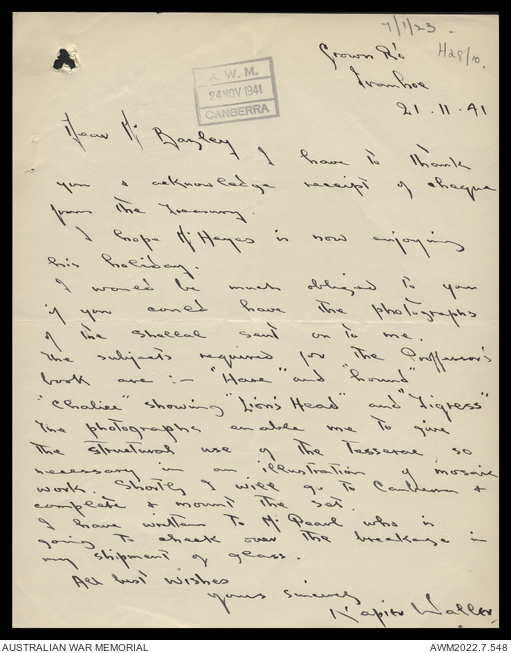 7/1/23
H28/10.
Crown Rd
Ivanhoe
21.11.41
A.W.M.
24 NOV 1941
CANBERRA
Dear Mr Bazley
I have to thank
you & acknowledge receipt of cheque
from the Treasury.
I hope Mr Heyes is now enjoying
his holiday.
I would be much obliged to you
if you could have the photographs
of the Shellal sent on to me.
The subjects required for the Proffesor's
book are :- "Hare" and "hound"
"Chalice" showing "Lion's Head" and "Tigress"
The photographs enable me to give
the structural use of the Tesserae so
necessary in an illustration of mosaic
work. Shortly I will go to Canberra &
complete & mount the set.
I have written to Mr Pearl who is
going to check over the breakage in
my shipment of glass.
All best wishes
yours sincerely
Napier Waller.
AUSTRALIAN WAR MEMORIAL
AWM2022.7.548